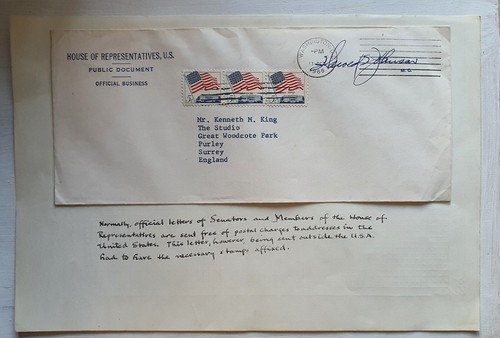 HOUSE OF REPRESENTATIVES, U.S.
PUBLIC DOCUMENT
OFFICIAL BUSINESS
WASHINGTON
PM
1966
M.C.
Mr. Kenneth M. King
The Studio
Great Woodcote Park
Purley
Surrey
England
Normally, official letters of Senators and Members of the House of
Representatives are sent free of postal charges to addresses in the
United States. This letter, however, being sent outside the U.S.A.
had to have the necessary stamps affixed.